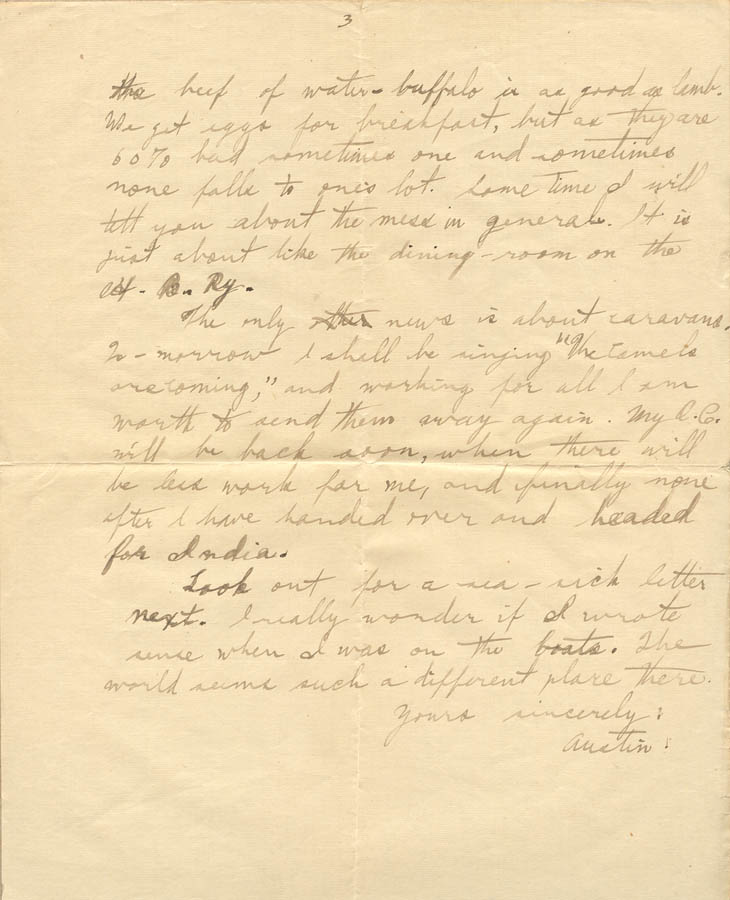 3
the beef of water-buffalo is as good as lamb.
We get eggs for breakfast, but as they are
60% bad sometimes one and sometimes
none falls to one's lot. Some time I will
tell you about the mess in general. It is
just about like the dining-room on the
H. B. Ry.
The only other news is about caravans.
To-morrow I shall be singing "The Camels
are coming," and working for all I am
worth to send them away again. My O.C.
will be back soon, when there will
be less work for me, and finally none
after I have handed over and headed
for India.
Look out for a sea-sick letter
next. I really wonder if I wrote
sense when I was on the boats. The
world seems such a different place there.
Yours sincerely:
Austin: